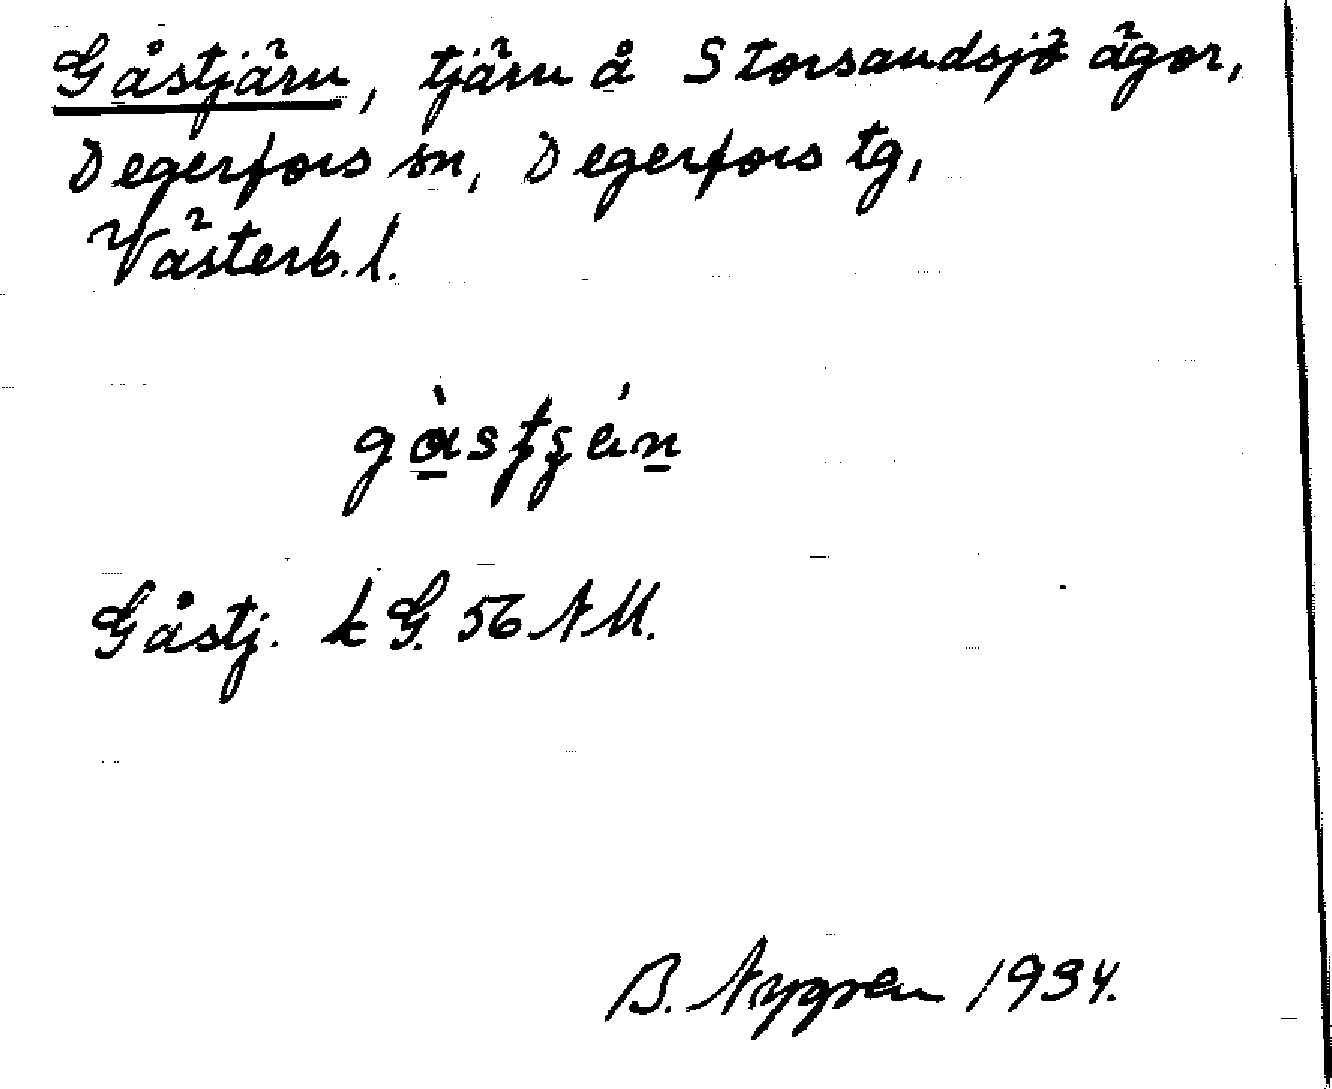 Gåstjärn, tjärn å Storsandsjö ägor,
Degerfors sn, Degerfors tg,
Västerb. l.
Gåstj. k G. 56 NM.
B. Nygren 1934.